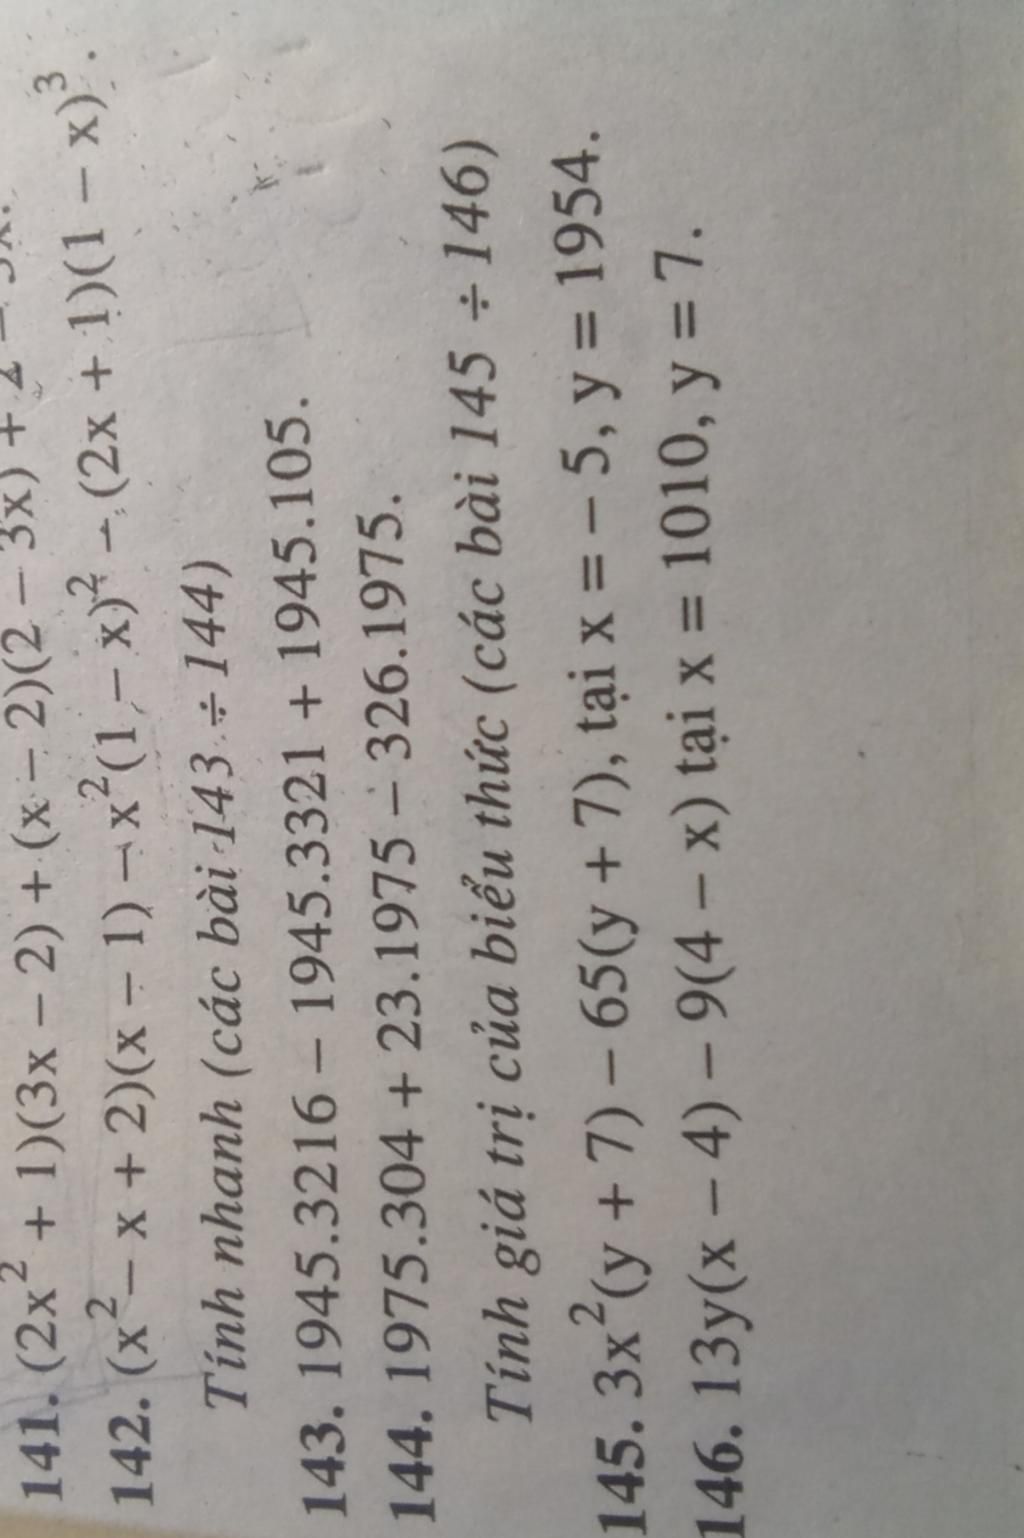 141. (2x² + 1)(3x – 2) + (x – 2)(2 – 3x) +
142. (x² – x + 2)(x – 1) – x²(1 – x)² – (2x + 1)(1 – x)³.
Tính nhanh (các bài 143 ÷ 144)
143. 1945.3216 – 1945.3321 + 1945.105.
144. 1975.304 + 23.1975 – 326.1975.
Tính giá trị của biểu thức (các bài 145 ÷ 146)
145. 3x²(y + 7) – 65(y + 7), tại x = – 5, y = 1954.
146. 13y(x – 4) – 9(4 – x) tại x = 1010, y = 7.